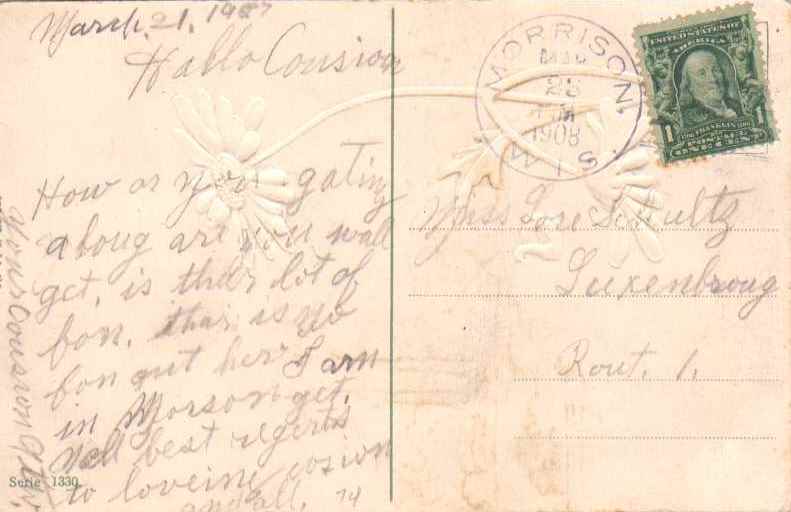 March, 21, 1907
Hallo Cousion
How ar you gating
aloug are you wall
get, is ther lot of
fon, thar is no
fon gut her I am
in Morson get.
Well best regerts
to loveine cosion
and all. 74
Your Cousion
Serie 1330
MORRISON,
MAR
25
1908
WIS.
UNITED STATES OF
AMERICA
1 1
FRANKLIN
POSTAGE
ONE CENT
Miss Rose Schultz
Luxenbroug
Rout. 1.